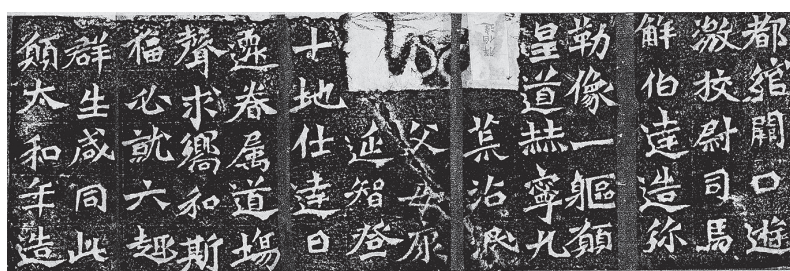 都綰闕口遊
激校尉司馬
觧伯達造弥
勒像一軀願
皇道赫寧九
荒沾泯
父母康
延智登
十地仕達日
遷眷属道場
聲求嚮和斯
福必就六趣
群生咸同此
願大和年造